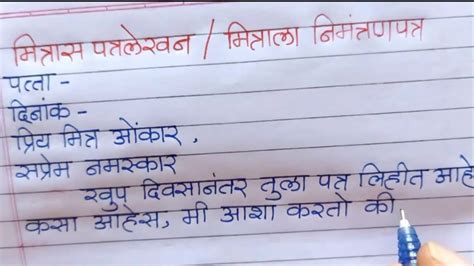 मित्रास पत्रलेखन / मित्राला निमंत्रणपत्र
पत्ता -
दिनांक -
प्रिय मित्र ओंकार ,
सप्रेम नमस्कार
खुप दिवसानंतर तुला पत्र लिहीत आहे
कसा आहेस, मी आशा करतो की